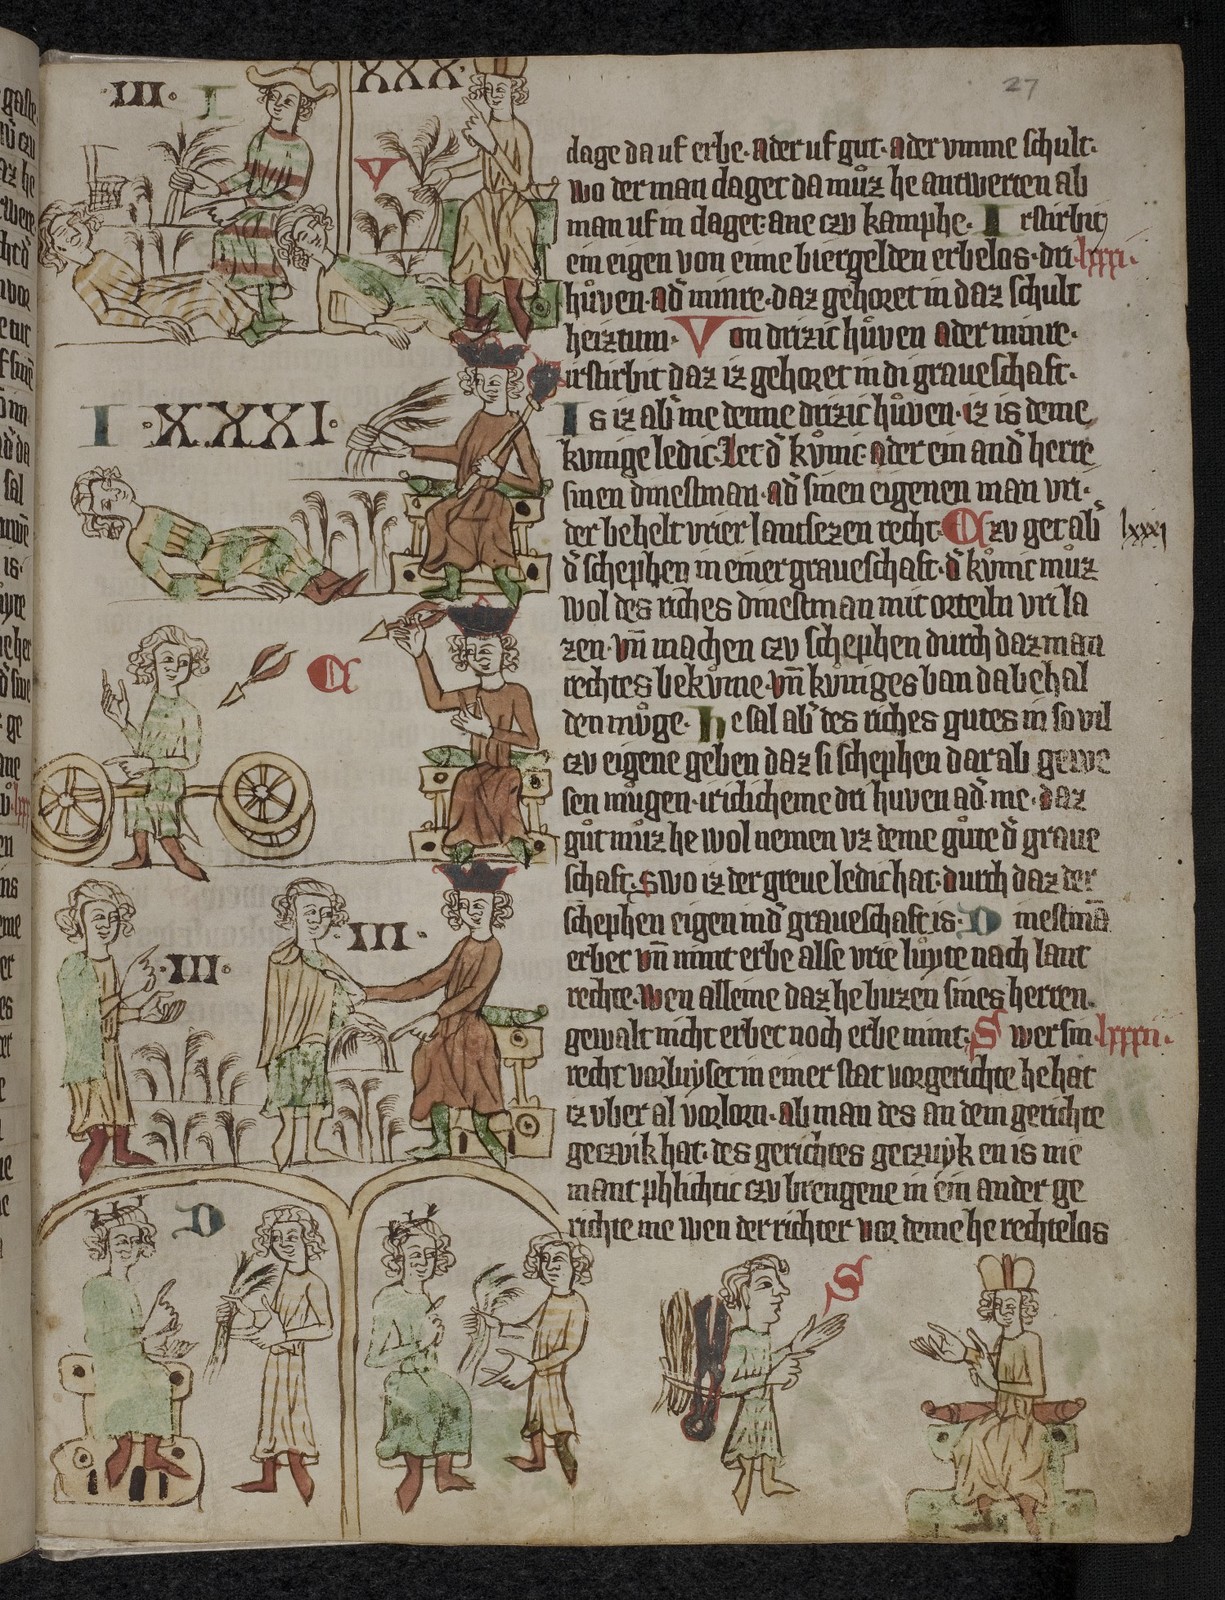 27
III. I
XXX.
V
dage da uf erbe. ader uf gut. ader vmme schult.
wo der man daget da můz he antwerten ab
man uf in daget. ane czv kamphe. Irstirbit
ein eigen von eime biergelden erbelos. dri lxxxi.
hůven. ad' minre. daz gehoret in daz schult
heiztum. Von drizic hůven ader minre.
irstirbit daz iz gehoret in di graueschaft.
Is iz ab' me denne drizic hůven. iz is deme
kvnige ledic. Let d' kvnic. ader ein and' herre
sinen dinestman. ad' sinen eigenen man vri.
der behelt vrier lantsezen recht. Czv get ab' lxxxj
d' schephen in einer graueschaft. d' kvnic můz
wol des riches dinestman mit orteiln vri la
zen. vn̄ machen czv schephen durch daz man
rechtes bekvme. vn̄ kvniges ban da behal
den mvge. he sal ab' des riches gutes in so vil
czv eigene geben daz si schephen dar ab gewe
sen můgen. iclicheme dri huven ad' me. daz
gůt můz he wol nemen vz deme gůte d' graue
schaft. swo iz der greue ledic hat. durch daz der
schephen eigen in d' graueschaft is. Dinestmā
erbet vn̄ nimt erbe alse vrie lůyte nach lant
rechte. wen alleine daz he buzen sines herren.
gewalt nicht erbet noch erbe nimt. Swer sin lxxxii.
recht vorluyset in einer stat vor gerichte he hat
iz vber al vorlorn. ab man des an dem gerichte
geczvik hat. des gerichtes geczuyk en is nie
mant phlichtic czv brengene in ein ander ge
richte me wen der richter vor deme he rechtelos
I .XXXI.
C
III.
.III.
D
S